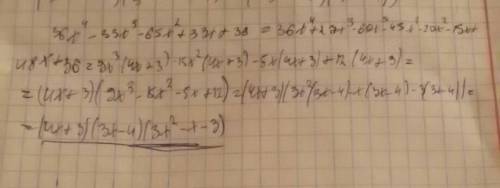 36x⁴ - 33x³ - 65x² + 33x + 36 = 36x⁴ + 27x³ - 60x³ - 45x² - 20x² - 15x +
48x + 36 = 9x³(4x+3) - 15x²(4x+3) - 5x(4x+3) + 12(4x+3) =
= (4x+3)(9x³ - 15x² - 5x + 12) = (4x+3)(3x²(3x-4) - x(3x-4) - 3(3x-4)) =
= (4x+3)(3x-4)(3x² - x - 3)